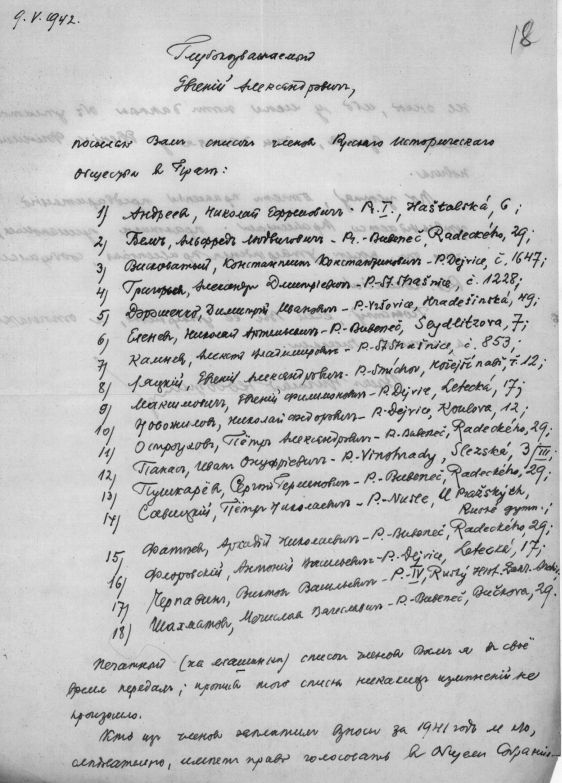 9. V. 1942.
18
Глубокоуважаемый
Евгеній Александровичъ,
посылаю Вамъ списокъ членовъ Русского Исторического
Общества в Праге:
1) Андреев, Николай Ефремович - P. I., Haštalská, 6;
2) Бемъ, Альфредъ Людвигович - P.-Bubeneč, Radeckého, 29;
3) Висковатый, Константин Константинович - P. Dejvice, č. 1647;
4) Александр Дмитріевич - P.-St. Strašnice, č. 1228;
5) Дорошенко, Димитрій Иванович - P. Vršovice, Hradešínská, 49;
6) Еленев, Николай Артемьевич - P.-Bubeneč, Seydlitzova, 7;
7) Владимирович - P.-St. Strašnice, č. 853;
8) Ляцкій, Евгеній Александрович - P.-Smíchov, Hořejší nábř., č. 12;
9) Максимович, Евгеній Филимонович - P. Dejvice, Letecká, 17;
10) Новожилов, Николай Федорович - P. Dejvice, Koulova, 12;
11) Остроухов, Пётръ Александрович - P.-Bubeneč, Radeckého, 29;
12) Панас, Иван Онуфріевич - P.-Vinohrady, Slezská, 3/III;
13) Пушкарёв, Сергей Германович - P.-Bubeneč, Radeckého, 29;
14) Савицкий, Пётръ Николаевич - P.-Nusle, U Pražských,
Ruské gymn.;
15) Фатеев, Аркадій Николаевич - P.-Bubeneč, Radeckého 29;
16) Флоровскій, Антоний Васильевич - P.-Dejvice, Letecká, 17;
17) Виктор Васильевич - P.-IV, Ruský Hist.
18) Шахматовъ, Мстислав Вячеславич - P.-Bubeneč, Bučkova, 29.
Печатный (на машинке) список членов Вамъ я в своё
время передал; против того списка никаких измѣнений не
произошло.
Кто из членов заплатилъ взносы за 1941 годъ и кто,
следовательно, имеетъ право голосовать в Общем Собраніи